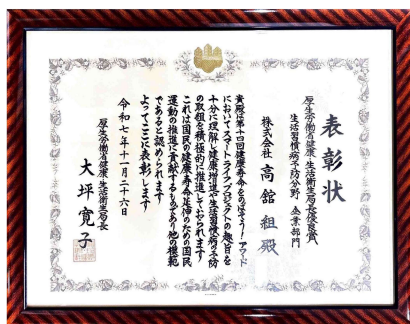 表彰状
厚生労働省健康・生活衛生局長優良賞
生活習慣病予防分野 企業部門
株式会社 高舘組 殿
貴殿は第十四回健康寿命をのばそう!アワード
においてスマートライフプロジェクトの趣旨を
十分に理解し健康増進や生活習慣病の予防
の取組を積極的に推進しておられます
これは国民の健康寿命延伸のための国民
運動の推進に貢献するものであり他の模範
であると認められます
よってここに表彰します
令和七年十一月二十六日
厚生労働省健康・生活衛生局長
大坪寛子